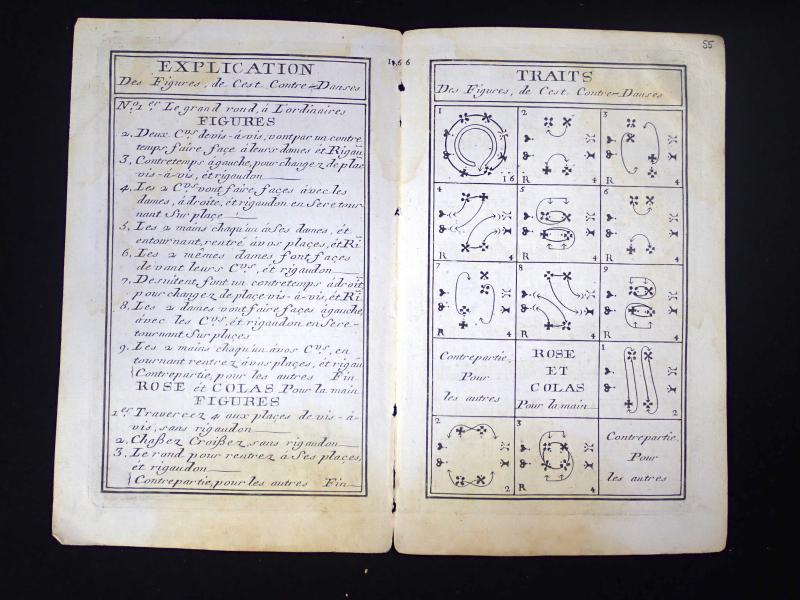 EXPLICATION
Des Figures, de Cest Contre-Danses
No. 1 er Le grand rond, à L'ordinaires
FIGURES
2. Deux C.vs de vis-à-vis, vont par un contre
temps faire face à leurs dames èt Rigau
3. Contretemps àgauche, pour changez de place
vis-à-vis, èt rigaudon
4. Les 2 C.vs vont faire façes àvec les
dames, àdroite, èt rigaudon en Seretour-
nant Sur plaçe
5. Les 2 mains chaqu'un à Ses dames, èt
entournant, rentré àvos plaçes, èt Ri
6. Les 2 mêmes dames font façes
de vant leurs C.vs, èt rigaudon
7. Desuitent, font un contretemps àdroit
pour changez de plaçe vis-à-vis, èt Ri
8. Les 2 dames vont faire façes àgauche,
àvec les C.vs, èt rigaudon en Sere-
tournant Sur plaçes
9. Les 2 mains chaqu'un àvos C.vs, en
tournant rentrez àvos plaçes, èt rigau
Contrepartie, pour les autres Fin.
ROSE èt COLAS. Pour la main
FIGURES
1 er Travercez 4 aux plaçes de vis-à-
vis, sans rigaudon
2. Chaßez Croißez, sans rigaudon
3. Le rond pour rentrez à Ses plaçes,
èt rigaudon
Contrepartie, pour les autres Fin
166
55
TRAITS
Des Figures, de Cest Contre-Danses
1 2 3
16 R 4 R 4
4 5 6
R 4 R 4 R 4
7 8 9
R 4 R 4 R 4
Contrepartie,
Pour
les autres
ROSE
ET
COLAS
Pour la main
1
2
2 3
2 R 4
Contrepartie,
Pour
les autres